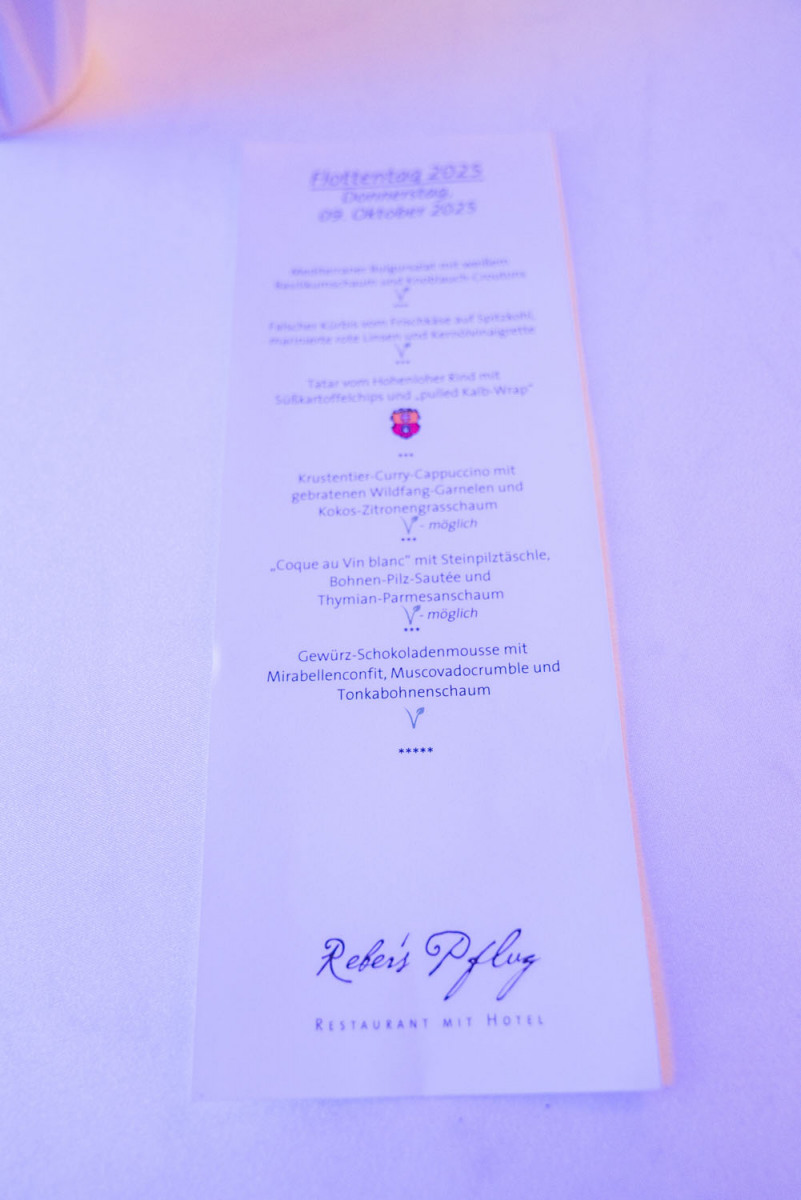 Flottentag 2025
Donnerstag,
09. Oktober 2025
Mediterraner Bulgursalat mit weißem
Basilikumschaum und Knoblauch-Croutons
Falscher Kürbis vom Frischkäse auf Spitzkohl,
marinierte rote Linsen und Kernölvinaigrette
***
Tatar vom Hohenloher Rind mit
Süßkartoffelchips und „pulled Kalb-Wrap“
***
Krustentier-Curry-Cappuccino mit
gebratenen Wildfang-Garnelen und
Kokos-Zitronengrasschaum
V - möglich
***
„Coque au Vin blanc“ mit Steinpilztäschle,
Bohnen-Pilz-Sautée und
Thymian-Parmesanschaum
V - möglich
***
Gewürz-Schokoladenmousse mit
Mirabellenconfit, Muscovadocrumble und
Tonkabohnenschaum
V
*****
Reber's Pflug
RESTAURANT MIT HOTEL